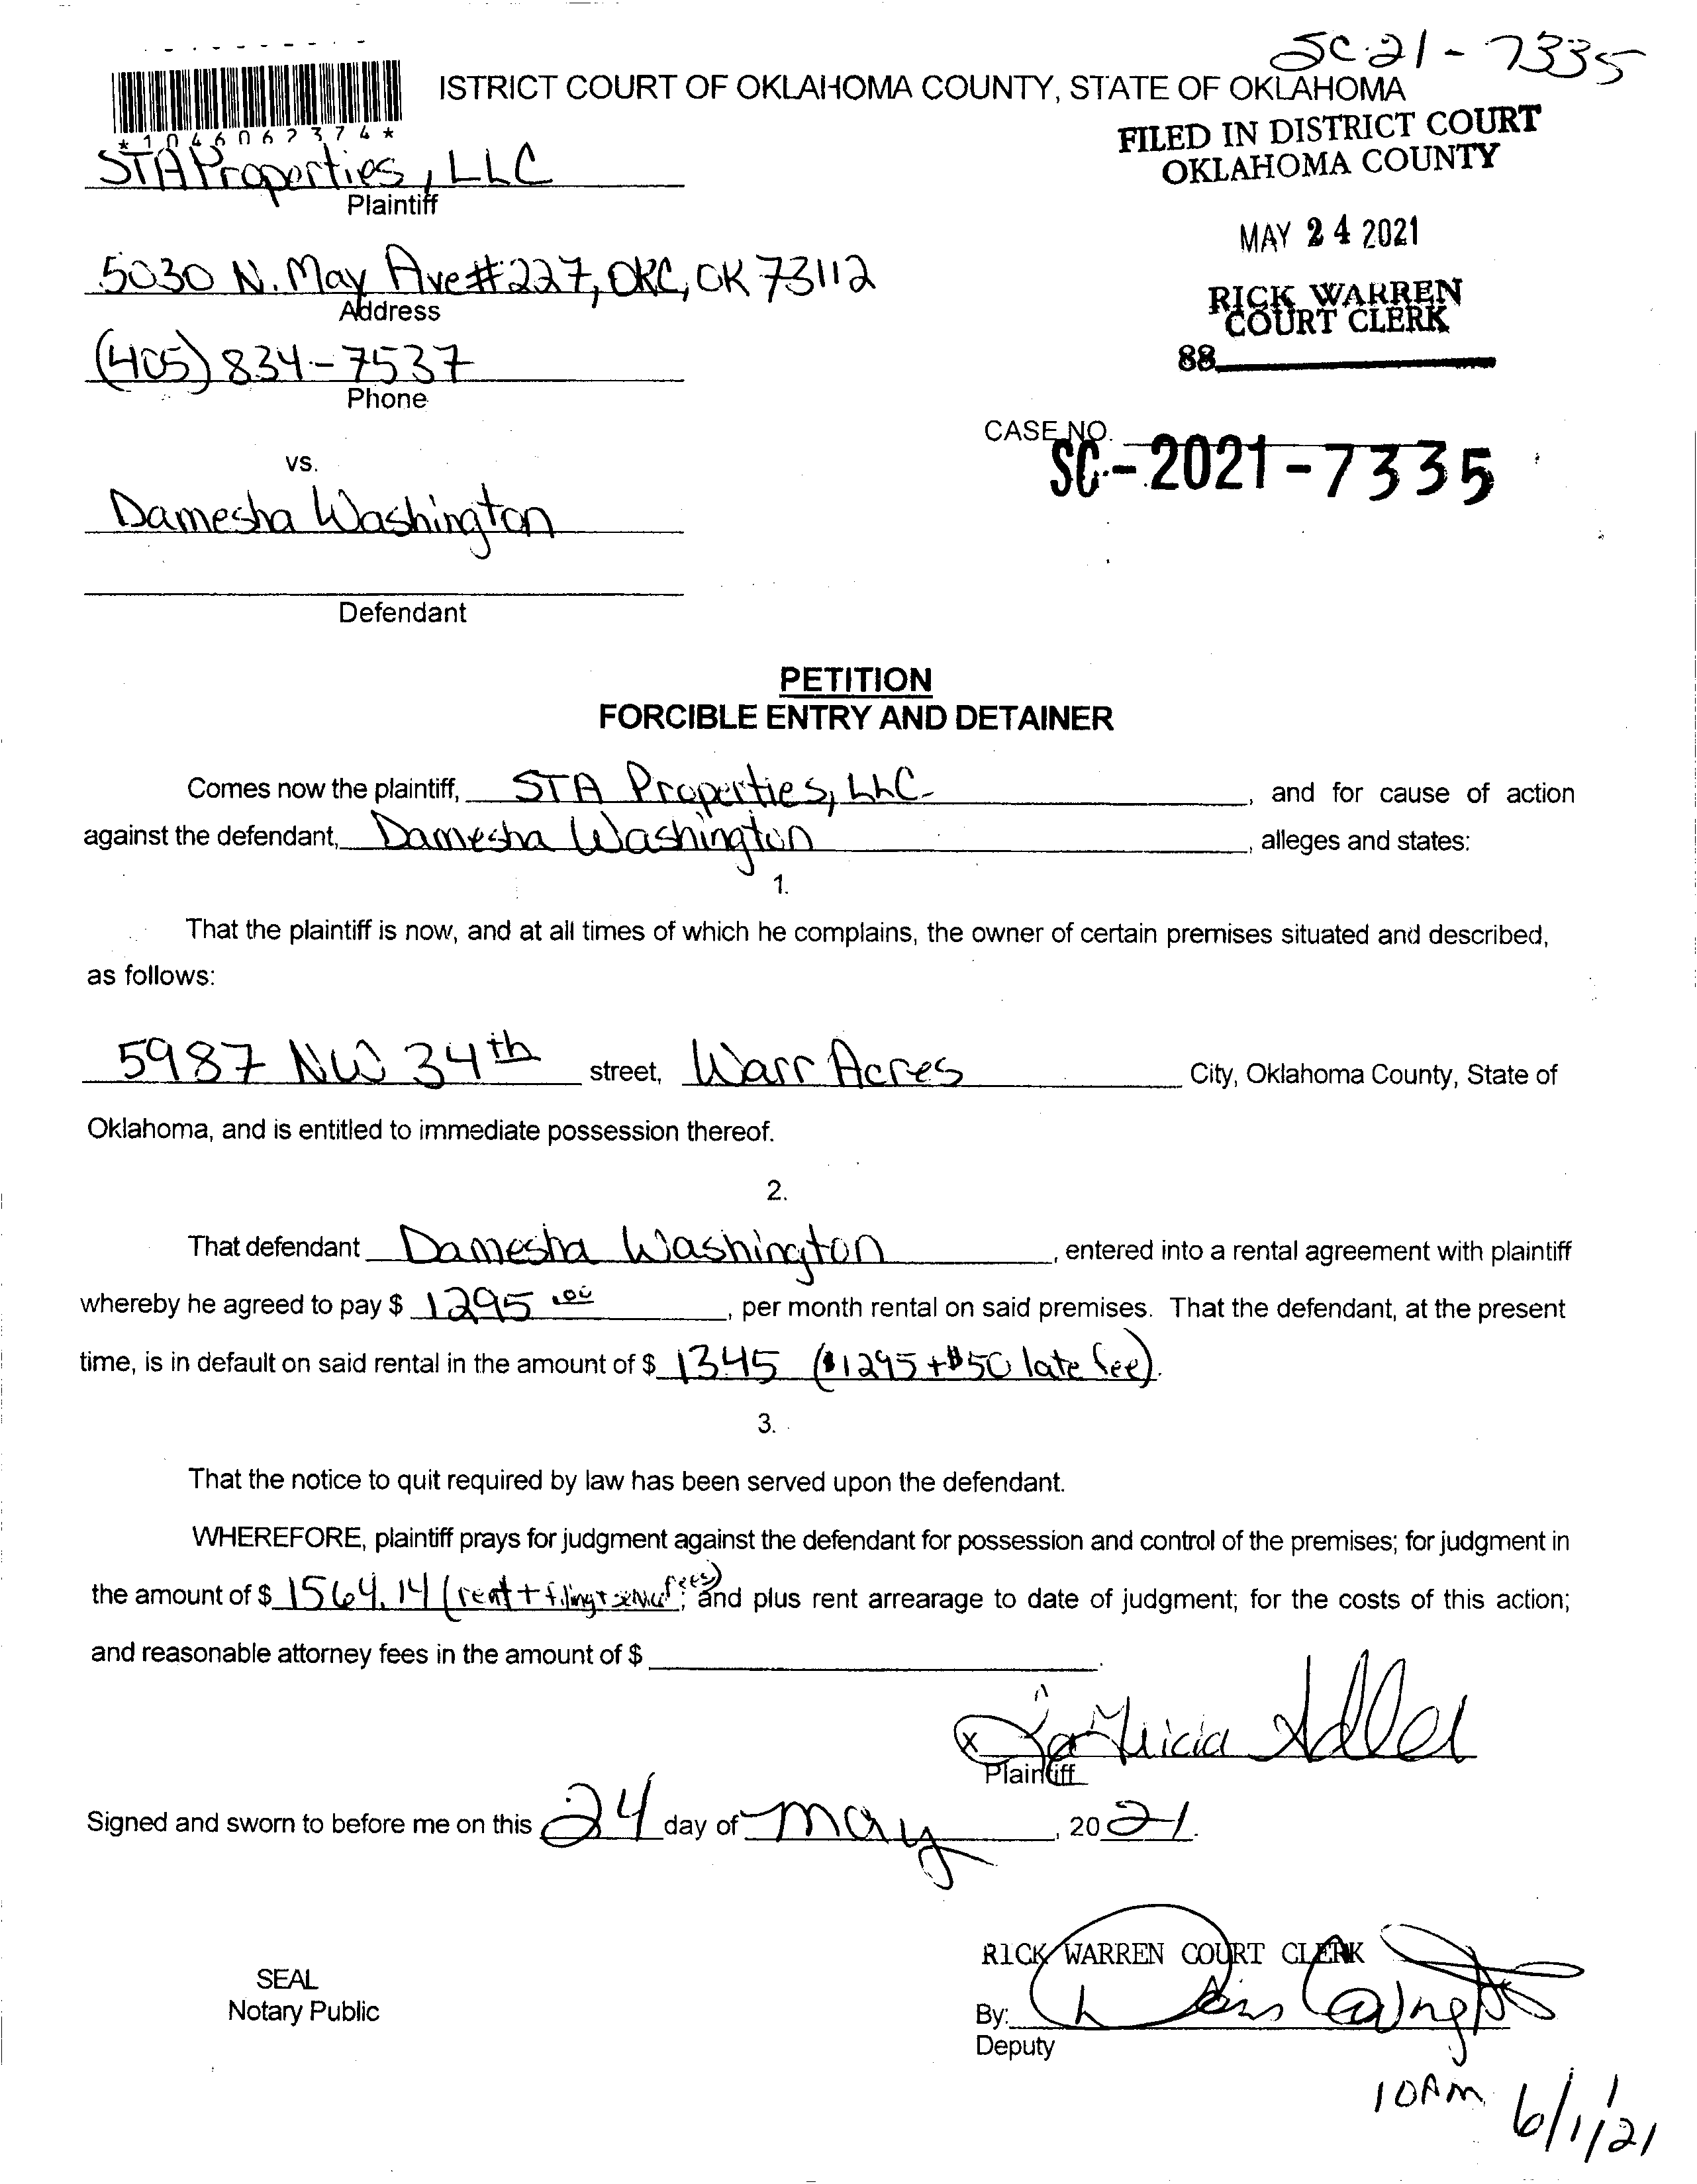 SC-21-7335
ISTRICT COURT OF OKLAHOMA COUNTY, STATE OF OKLAHOMA
*1046062374*
FILED IN DISTRICT COURT
OKLAHOMA COUNTY
STA Properties, LLC
Plaintiff
MAY 24 2021
5030 N. May Ave #227, OKC, OK 73112
Address
RICK WARREN
COURT CLERK
(405) 834-7537
88
Phone
CASE NO. SC-2021-7335
vs.
Damesha Washington
Defendant
PETITION
FORCIBLE ENTRY AND DETAINER
Comes now the plaintiff, STA Properties, LLC , and for cause of action
against the defendant, Damesha Washington , alleges and states:
1.
That the plaintiff is now, and at all times of which he complains, the owner of certain premises situated and described,
as follows:
5987 NW 34th street, Warr Acres City, Oklahoma County, State of
Oklahoma, and is entitled to immediate possession thereof.
2.
That defendant Damesha Washington , entered into a rental agreement with plaintiff
whereby he agreed to pay $ 1295.00 , per month rental on said premises. That the defendant, at the present
time, is in default on said rental in the amount of $ 1345 ($1295+$50 late fee).
3.
That the notice to quit required by law has been served upon the defendant.
WHEREFORE, plaintiff prays for judgment against the defendant for possession and control of the premises; for judgment in
the amount of $ 1564.14 (rent + filing + service fees); and plus rent arrearage to date of judgment; for the costs of this action;
and reasonable attorney fees in the amount of $ .
x LaTricia Adler
Plaintiff
Signed and sworn to before me on this 24 day of may , 2021.
RICK WARREN COURT CLERK
SEAL
Notary Public
By:
Deputy
10AM 6/1/21